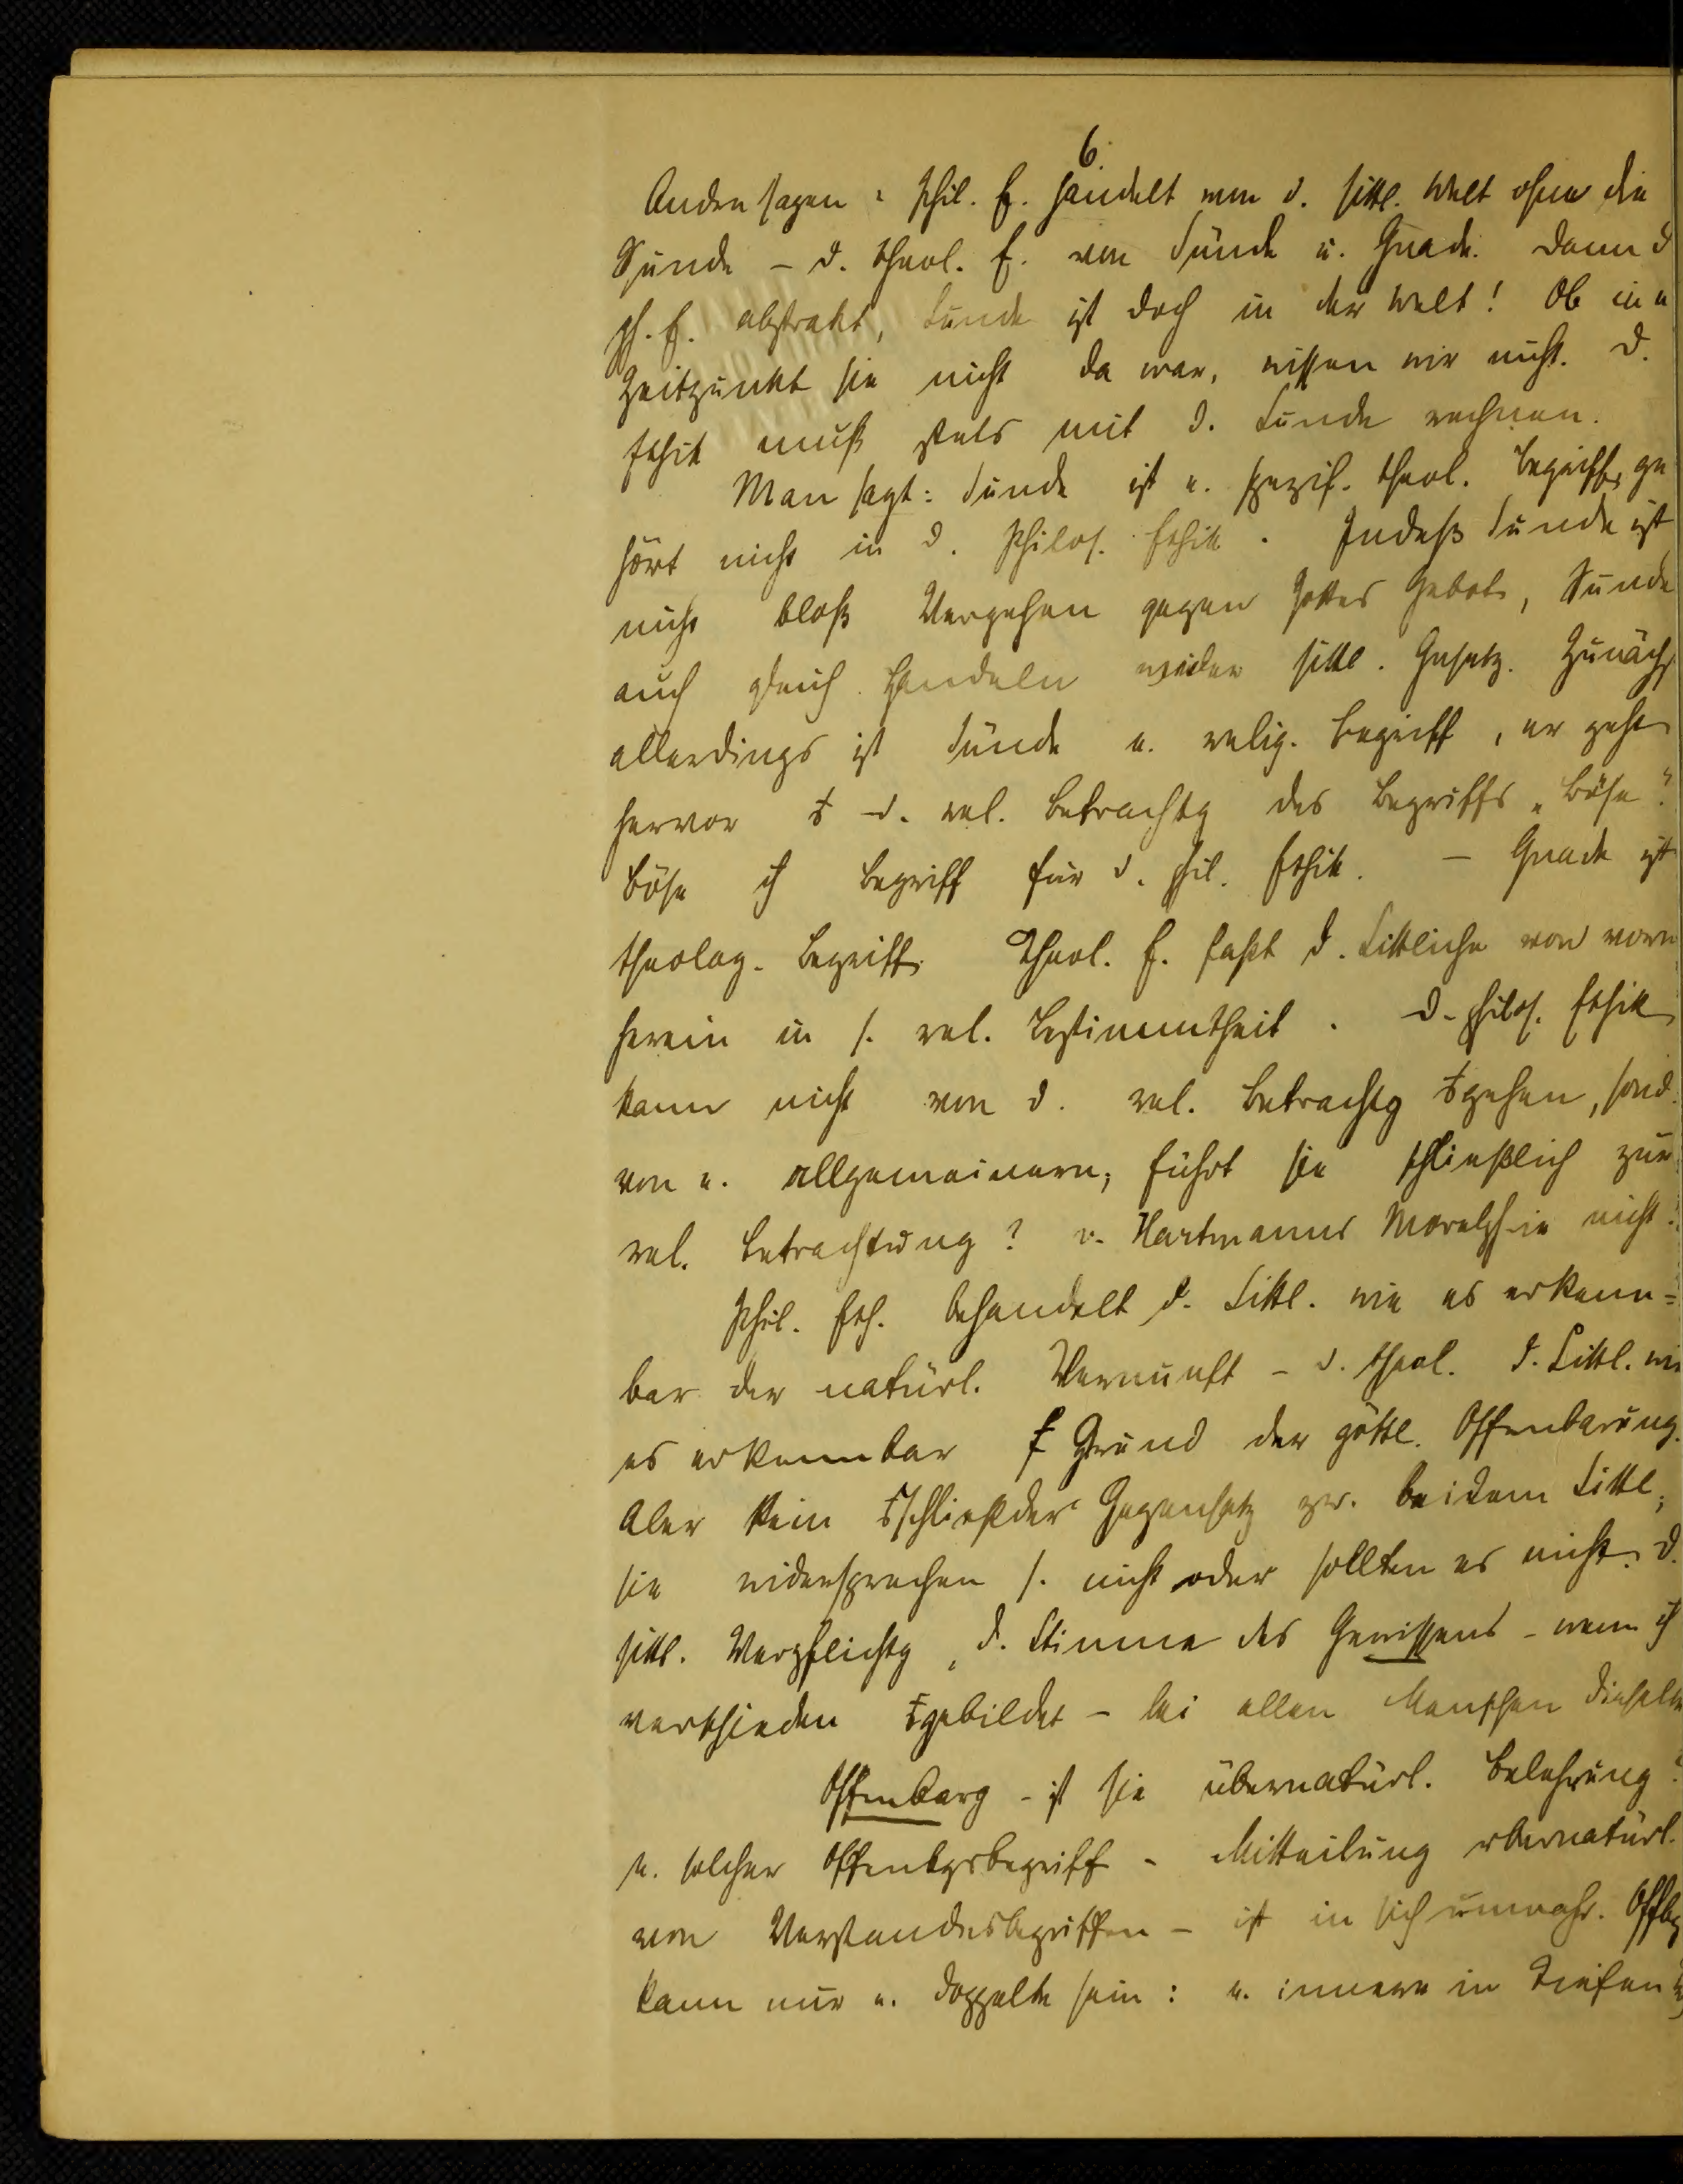 6.
Andre sagen: Phil. E. handelt von d. sittl. Welt ohne die
Sünde – d. theol. E. von Sünde u. Gnade. Dann d
ph. E. abstrakt, Sünde ist doch in der Welt! Ob in e
Zeitpunkt sie nicht da war, wissen wir nicht. D.
Ethik muß stets mit d. Sünde rechnen.
Man sagt: Sünde ist e. spezif. theol. Begriff, ge
hört nicht in d. Philos. Ethik. Indeß Sünde ist
nicht bloß Vergehen gegen Gottes Gebote, Sünde
auch gleich Handeln wider sittl. Gesetz. Zunächst
allerdings ist Sünde e. relig. Begriff, er geht
hervor d. rel. Betrachtg des Begriffs „Böse“.
Böse ist Begriff für d. phil. Ethik. – Gnade ist
theolog. Begriff. Theol. E. faßt d. Sittliche von vorn
herein in s. rel. Bestimmtheit. D. philos. Ethik
kann nicht von d. rel. Betrachtg gehen, sond.
von e. allgemeinern; führt sie schließlich zur
rel. Betrachtung? v. Hartmanns Moralph-ie nicht.
Phil. Eth. behandelt d. Sittl. wie es erkenn=
bar der natürl. Vernunft – d. theol. d. Sittl. wie
es erkennbar Grund der göttl. Offenbarung.
Aber kein schließder Gegensatz zw. beidem Sittl.;
sie widersprechen s. nicht oder sollten es nicht. D.
sittl. Verpflichtg, d. Stimme des Gewissens – wenn
verschieden gebildet – bei allen Menschen dieselbe
Offenbarg – ist sie übernatürl. Belehrung?
e. solcher Offenbgsbegriff – Mitteilung übernatürl.
von Verstandesbegriffen – ist in sich unwahr. Offbg
kann nur e. doppelte sein: e. innere in Tiefen